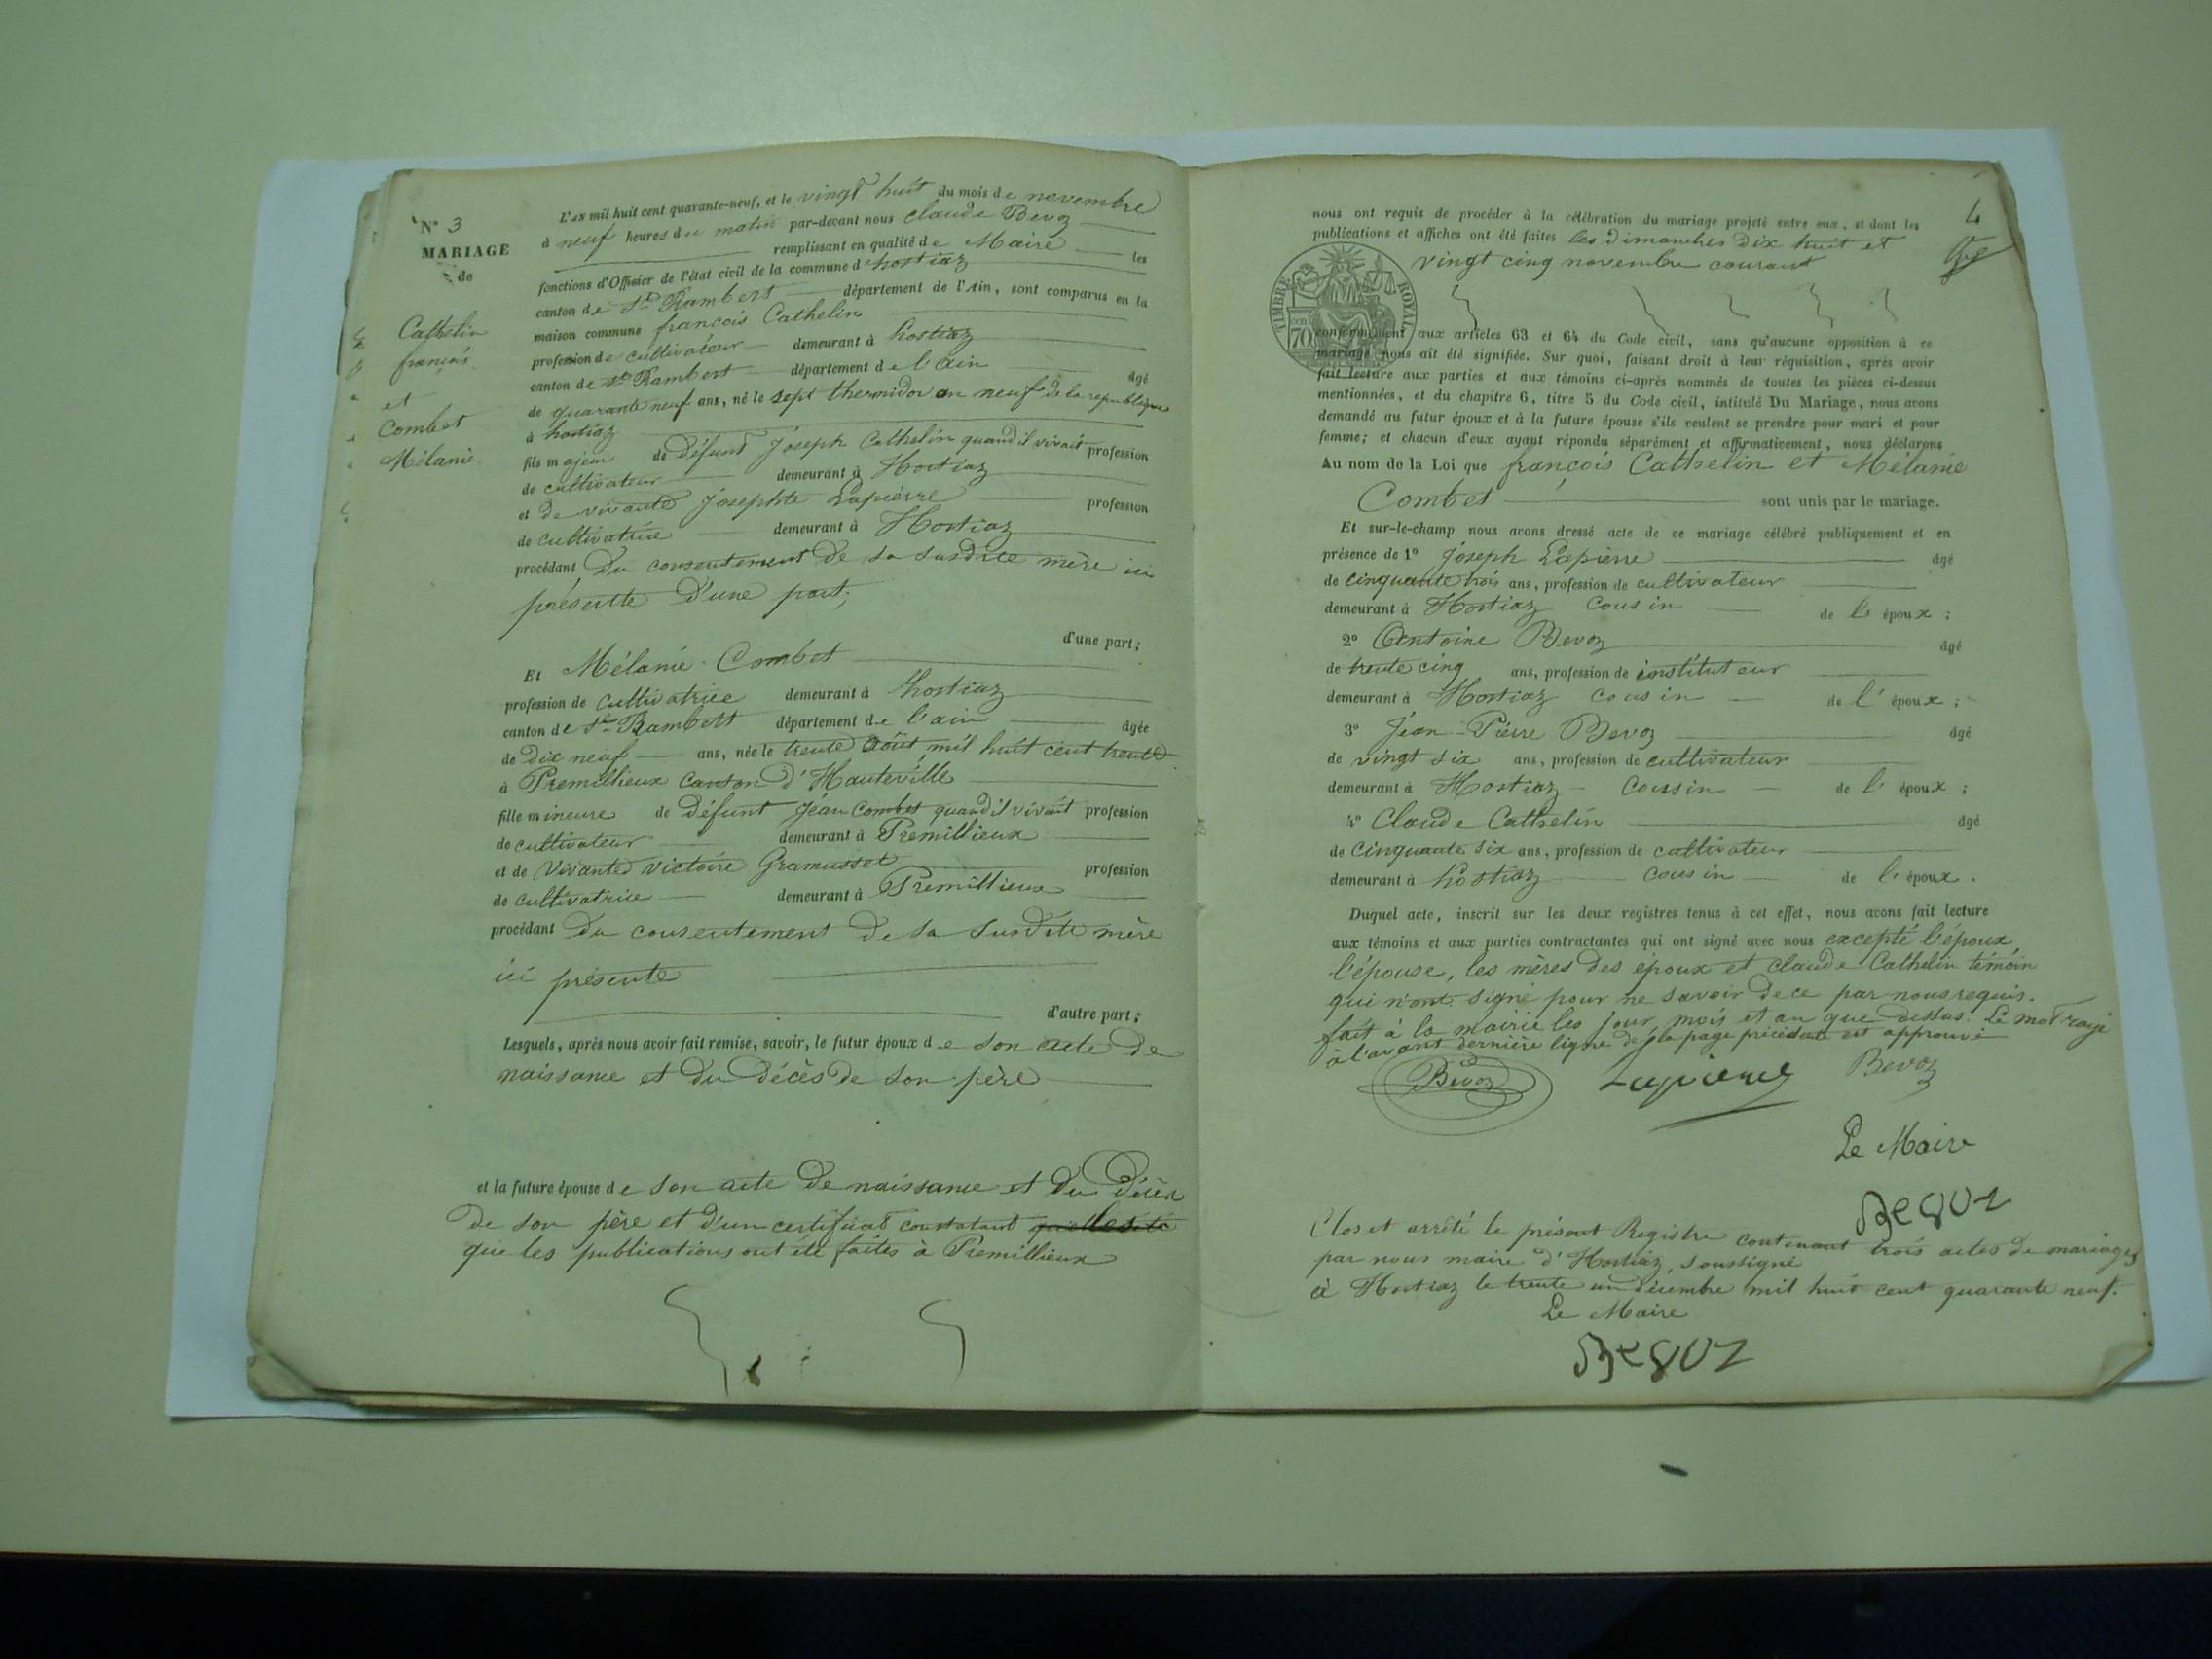 N° 3
MARIAGE
de
Cathelin
françois
et
Combet
Mélanie
L'AN mil huit cent quarante-neuf, et le vingt huit du mois de novembre
à neuf heures du matin par-devant nous Claude Bevoz
remplissant en qualité de Maire les
fonctions d'Officier de l'état civil de la commune d'hostiaz
canton de St Rambert département de l'Ain, sont comparus en la
maison commune françois Cathelin
profession de cultivateur demeurant à hostiaz
canton de St Rambert département de l'ain âgé
de quarante neuf ans, né le sept thermidor an neuf de la republique
à hostiaz
fils majeur de défunt Joseph Cathelin quand il vivait profession
de cultivateur demeurant à Hostiaz
et de vivante Josephte Lapierre profession
de cultivatrice demeurant à Hostiaz
procédant du consentement de sa susdite mère ici
présentte d'une part;
d'une part;
Et Mélanie Combet
profession de cultivatrice demeurant à hostiaz
canton de St Rambert département de l'ain âgée
de dix neuf ans, née le trente août mil huit cent trente
à Premillieux canton d'Hauteville
fille mineure de défunt Jean Combet quand il vivait profession
de cultivateur demeurant à Premillieux
et de vivante victoire Gramusset profession
de cultivatrice demeurant à Premillieux
procédant du consentement de sa susdite mère
ici présente
d'autre part;
Lesquels, après nous avoir fait remise, savoir, le futur époux de son acte de
naissance et du décès de son père
et la future épouse de son acte de naissance et du décès
de son père et d'un certificat constatant
que les publications ont été faites à Premillieux
4
nous ont requis de procéder à la célébration du mariage projeté entre eux, et dont les
publications et affiches ont été faites les dimanches dix huit et
vingt cinq novembre courant
TIMBRE ROYAL
70 cen
conformément aux articles 63 et 64 du Code civil, sans qu'aucune opposition à ce
mariage nous ait été signifiée. Sur quoi, faisant droit à leur réquisition, après avoir
fait lecture aux parties et aux témoins ci-après nommés de toutes les pièces ci-dessus
mentionnées, et du chapitre 6, titre 5 du Code civil, intitulé Du Mariage, nous avons
demandé au futur époux et à la future épouse s'ils veulent se prendre pour mari et pour
femme; et chacun d'eux ayant répondu séparément et affirmativement, nous déclarons
Au nom de la Loi que françois Cathelin et Mélanie
Combet sont unis par le mariage.
Et sur-le-champ nous avons dressé acte de ce mariage célébré publiquement et en
présence de 1° Joseph Lapierre âgé
de cinquante trois ans, profession de cultivateur
demeurant à Hostiaz cousin de l'époux;
2° Antoine Bevoz âgé
de trente cinq ans, profession de instituteur
demeurant à Hostiaz cousin de l'époux;
3° Jean-Pierre Bevoz âgé
de vingt six ans, profession de cultivateur
demeurant à Hostiaz cousin de l'époux;
4° Claude Cathelin âgé
de cinquante six ans, profession de cultivateur
demeurant à hostiaz cousin de l'époux.
Duquel acte, inscrit sur les deux registres tenus à cet effet, nous avons fait lecture
aux témoins et aux parties contractantes qui ont signé avec nous excepté l'époux,
l'épouse, les mères des époux et claude Cathelin témoin
qui n'ont signé pour ne savoir de ce par nous requis.
fait à la mairie les jour, mois et an que dessus. Le mot rayé
à l'avant dernière ligne de la page précédente est approuvé
Bevoz Lapierre Bevoz
Le Maire
Bevoz
Clos et arrêté le présent Registre contenant trois actes de mariages
par nous maire d'Hostiaz, soussigné
à Hostiaz le trente un décembre mil huit cent quarante neuf.
Le Maire
Bevoz